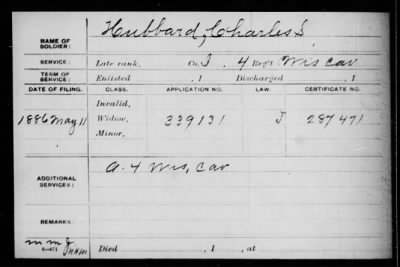 NAME OF SOLDIER: Hubbard, Charles S
SERVICE: Late rank, Co. I, 4 Reg't Wis Cav
TERM OF SERVICE: Enlisted , 1 Discharged , 1
DATE OF FILING. CLASS. APPLICATION NO. LAW. CERTIFICATE NO.
Invalid,
1886 May 11 Widow, 339131 J 287471
Minor,
ADDITIONAL SERVICES: A. 4 Wis, Cav
REMARKS:
Died , 1 , at